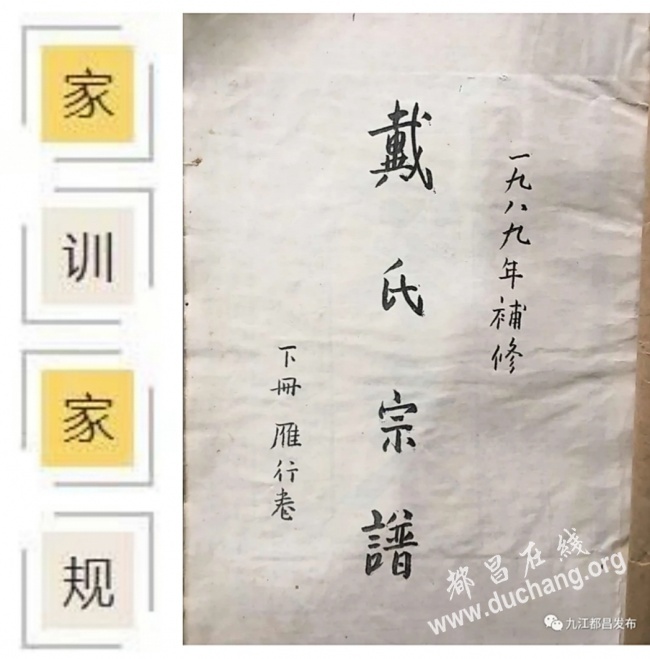 家
训
家
规
一九八九年補修
戴氏宗譜
下冊 雁行卷
都昌在綫
www.duchang.org
九江都昌发布